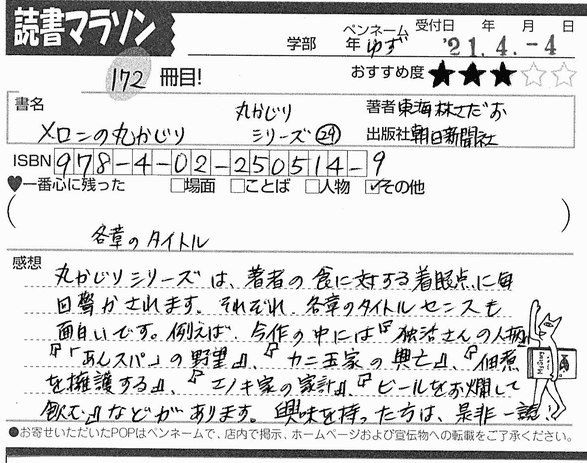 読書マラソン
学部 年 ペンネーム ゆず 受付日 年 月 日
'21.4.-4
172 冊目! おすすめ度 ★★★☆☆
書名 丸かじり 著者 東海林さだお
メロンの丸かじり シリーズ㉙ 出版社 朝日新聞社
ISBN 978-4-02-250514-9
♥一番心に残った □場面 □ことば □人物 ☑その他
(各章のタイトル)
感想
丸かじりシリーズは、著者の食に対する着眼点に毎
回驚かされます。それぞれ、各章のタイトルセンスも
面白いです。例えば、今作の中には『独活さんの人柄』
『「あんスパ」の野望』、『カニ玉家の興亡』、『佃煮
を擁護する』、『エノキ家の家計』、『ビールをお燗して
飲む』などがあります。興味を持った方は、是非一読!
●お寄せいただいたPOPはペンネームで、店内で掲示、ホームページおよび宣伝物への転載をご了承ください。